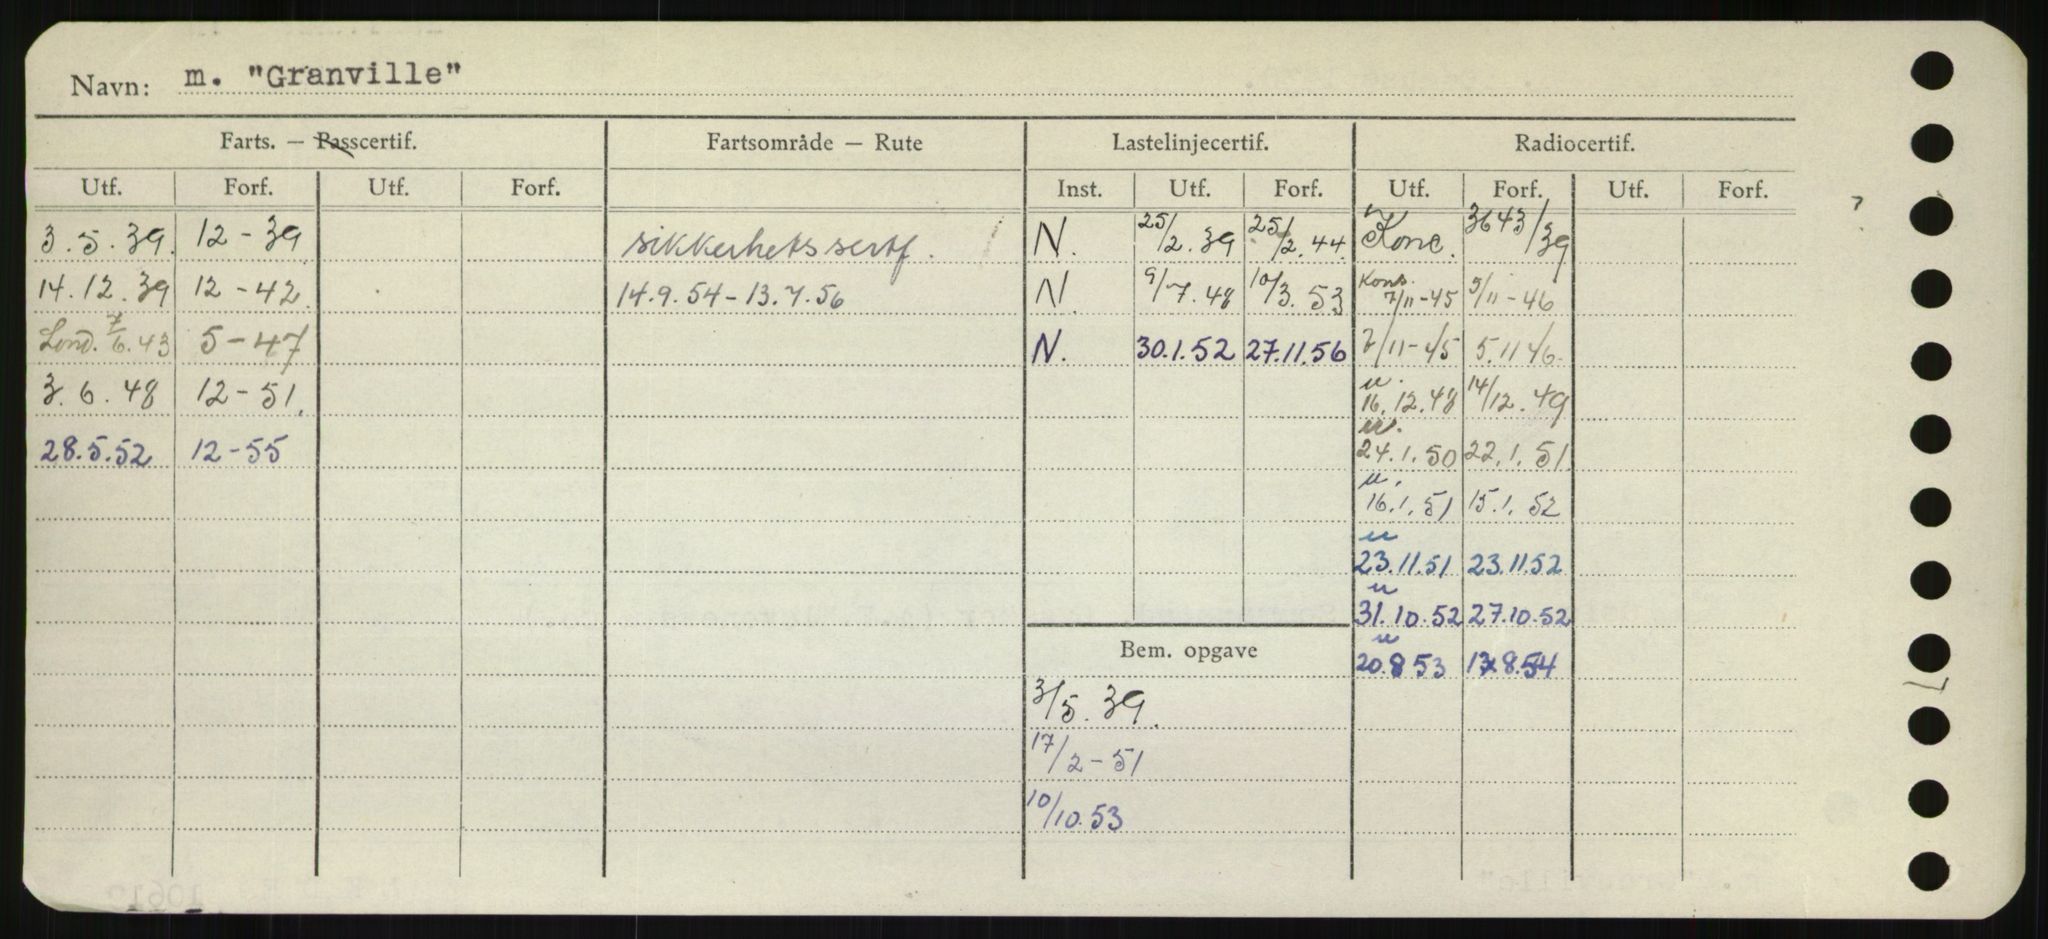 Navn: m. "Granville"
Farts. — Passcertif. Fartsområde — Rute Lastelinjecertif. Radiocertif.
Utf. Forf. Utf. Forf. Inst. Utf. Forf. Utf. Forf. Utf. Forf.
3.5.39. 12-39 sikkerhetssertf. N. 25/2.39 25/2.44. Konc. 3643/39
14.12.39 12-42. 14.9.54-13.7.56 N. 9/7.48 10/3.53 Kons. 7/11-45 5/11-46
Lond. 7/6.43 5-47 N. 30.1.52 27.11.56 7/11-45 5.11 46.
3.6.48 12-51. u. 16.12.48 14/12.49
28.5.52 12-55 u. 24.1.50 22.1.51
u. 16.1.51 15.1.52
u 23.11.51 23.11.52
u 31.10.52 27.10.52
Bem. opgave u 20.8 53 8.54
3/5.39.
17/2-51
10/10.53